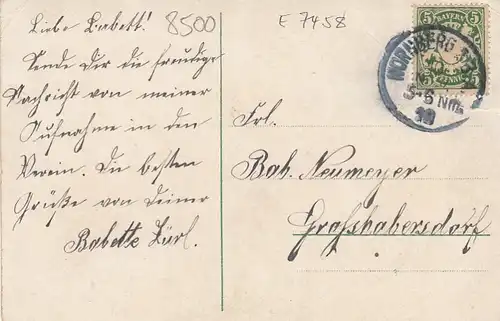 Liebe Babett!
Sende Dir die freudige
Nachricht von meiner
Aufnahme in den
Verein. Die besten
Grüße von Deiner
Babette Zürl.
8500
E 7458
5 BAYERN 5
NÜRNBERG
5-6 Nm.
10
Frl.
Bab. Neumeyer
Großhabersdorf